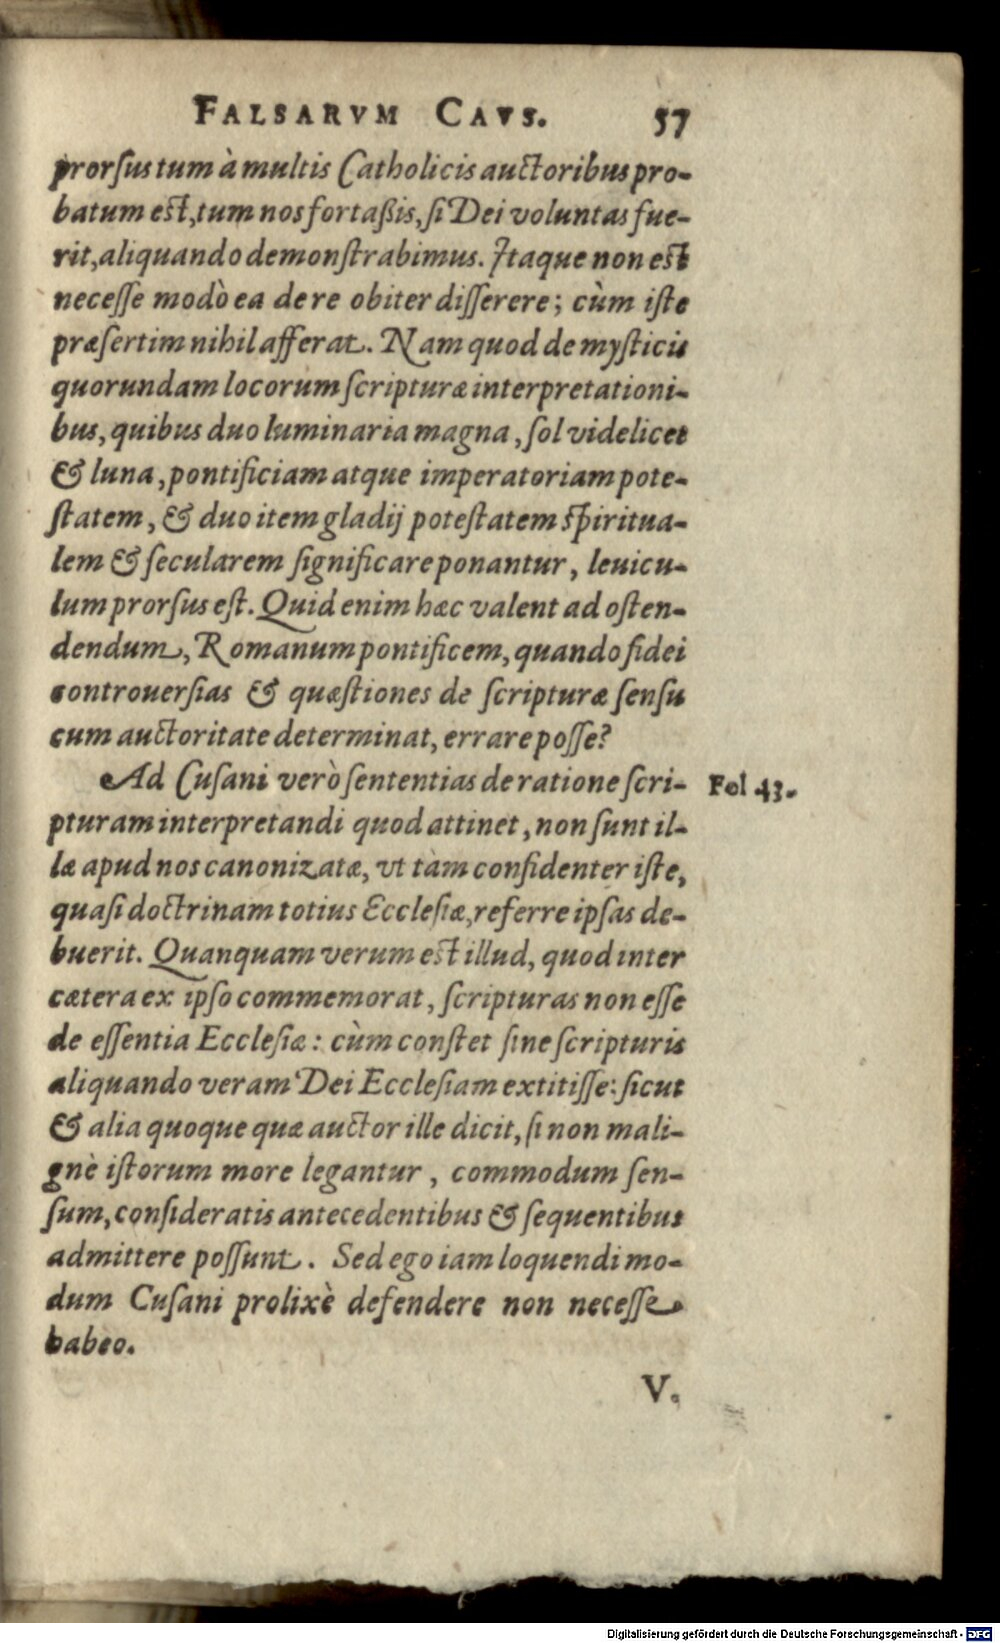 FALSARVM CAVS. 57
prorſus tum à multis Catholicis auctoribus pro-
batum est, tum nos fortaßis, ſi Dei voluntas fue-
rit, aliquando demonſtrabimus. Itaque non est
neceſſe modò ea de re obiter diſſerere; cùm iſte
præſertim nihil afferat. Nam quod de myſticis
quorundam locorum ſcripturæ interpretationi-
bus, quibus duo luminaria magna, ſol videlicet
& luna, pontificiam atque imperatoriam pote-
ſtatem, & duo item gladij poteſtatem ſpiritua-
lem & ſecularem ſignificare ponantur, leuicu-
lum prorſus eſt. Quid enim hæc valent ad oſten-
dendum, Romanum pontificem, quando fidei
controuerſias & quæſtiones de ſcripturæ ſenſu
cum auctoritate determinat, errare poſſe?
Ad Cuſani verò ſententias de ratione ſcri- Fol 43.
pturam interpretandi quod attinet, non ſunt il-
læ apud nos canonizatæ, vt tàm confidenter iſte,
quaſi doctrinam totius Eccleſiæ, referre ipſas de-
buerit. Quanquam verum est illud, quod inter
cætera ex ipſo commemorat, ſcripturas non eſſe
de eſſentia Eccleſiæ: cùm conſtet ſine ſcripturis
aliquando veram Dei Eccleſiam extitiſſe: ſicut
& alia quoque quæ auctor ille dicit, ſi non mali-
gnè iſtorum more legantur, commodum ſen-
ſum, conſideratis antecedentibus & ſequentibus
admittere poſſunt. Sed ego iam loquendi mo-
dum Cuſani prolixè defendere non neceſſe
habeo.
V.
Digitalisierung gefördert durch die Deutsche Forschungsgemeinschaft - DFG